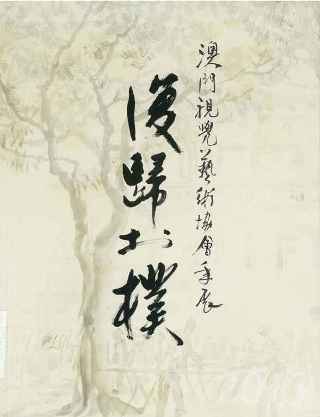 澳門視覺藝術協會年展
復歸於樸